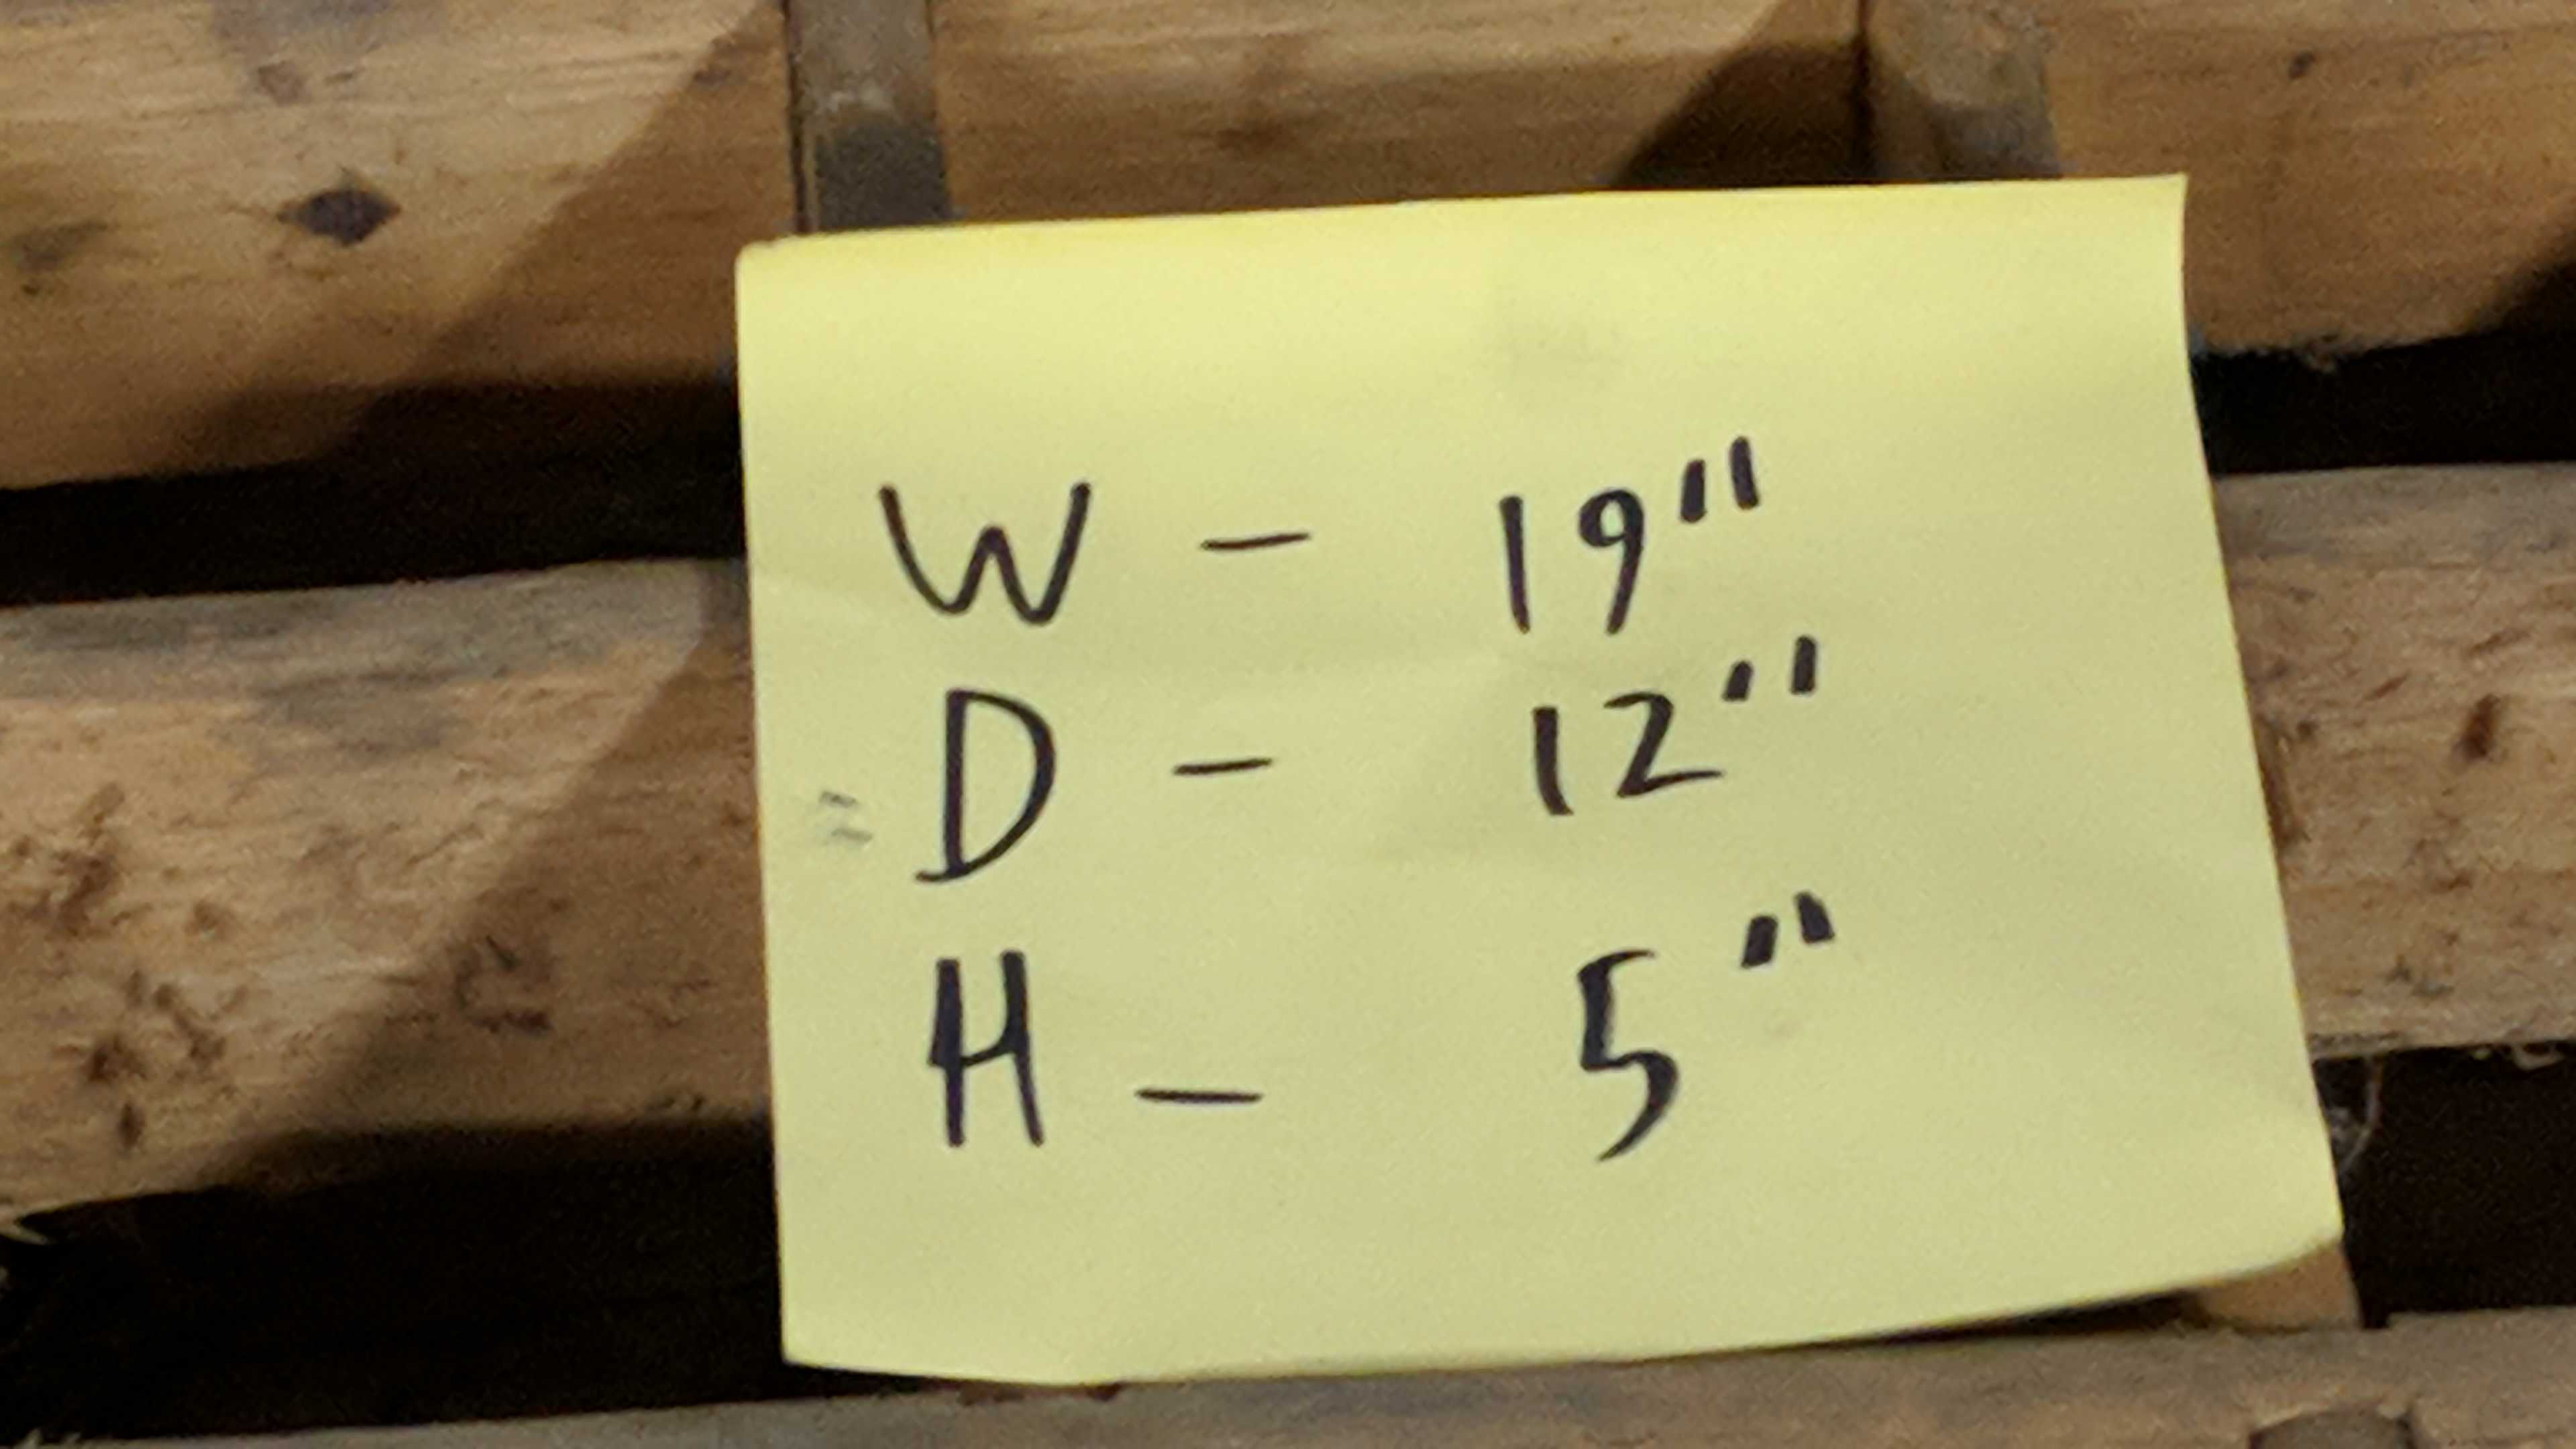 W - 19"
D - 12"
H - 5"